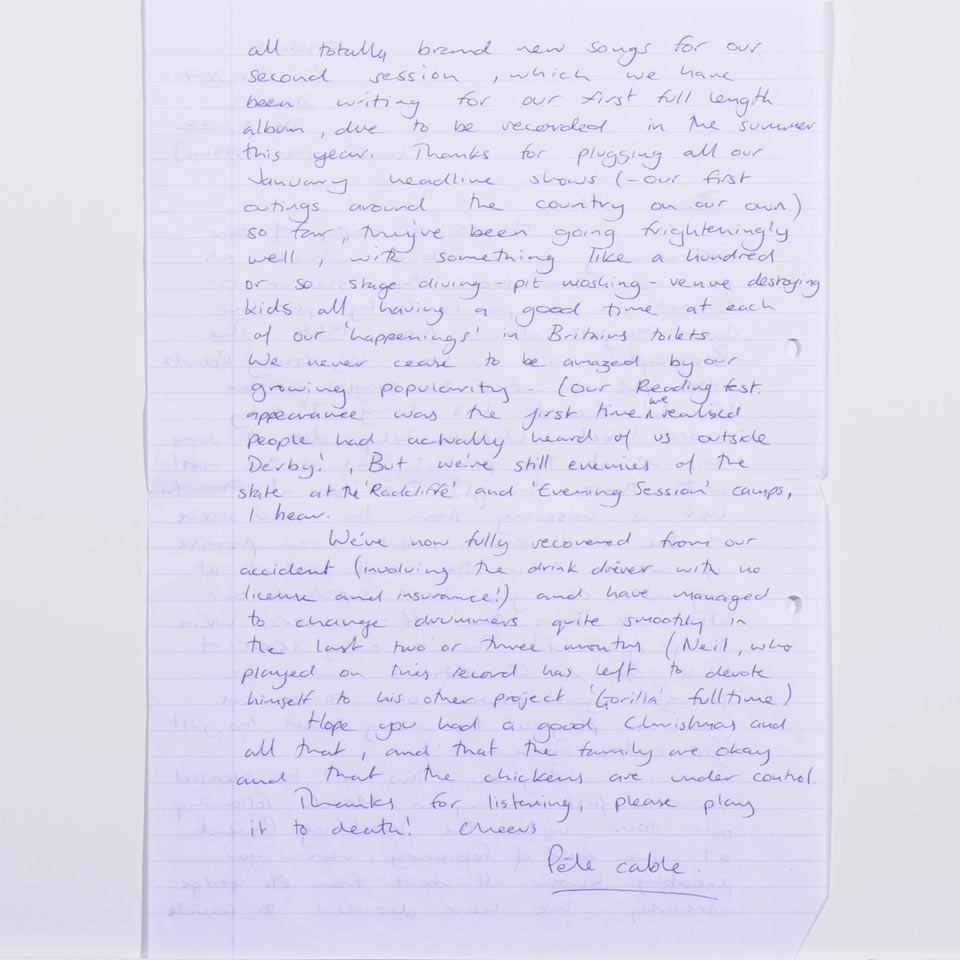 all totally brand new songs for our
second session, which we have
been writing for our first full length
album, due to be recorded in the summer
this year. Thanks for plugging all our
January headline shows (-our first
outings around the country on our own)
so far, they've been going frighteningly
well, with something like a hundred
or so stage diving - pit moshing - venue destroying
kids all having a good time at each
of our 'happenings' in Britains toilets.
We never cease to be amazed by our
growing popularity - (our Reading fest.
appearance was the first time we realised
people had actually heard of us outside
Derby!, But we're still enemies of the
state at the 'Radcliffe' and 'Evening Session' camps,
I hear.
We've now fully recovered from our
accident (involving the drink driver with no
license and insurance!) and have managed
to change drummers quite smoothly in
the last two or three months (Neil, who
played on this record has left to devote
himself to his other project 'Gorilla' fulltime)
Hope you had a good Christmas and
all that, and that the family are okay
and that the chickens are under control.
Thanks for listening, please play
it to death! Cheers
Pete cable.